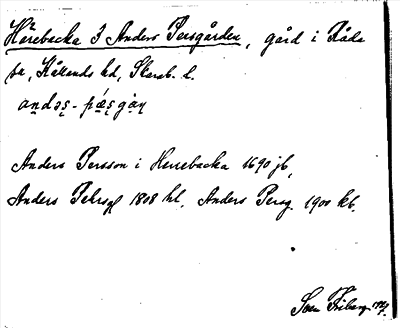 Härebacka 3 Anders Persgården, gård i Råda
sn, Kållands hd, Skarab. l.
andəs-pæsgån
Anders Persson i Herrebacka 1690 jb,
Anders Pehrsg 1808 hl. Anders Persg. 1900 kb.
Sven Friberg